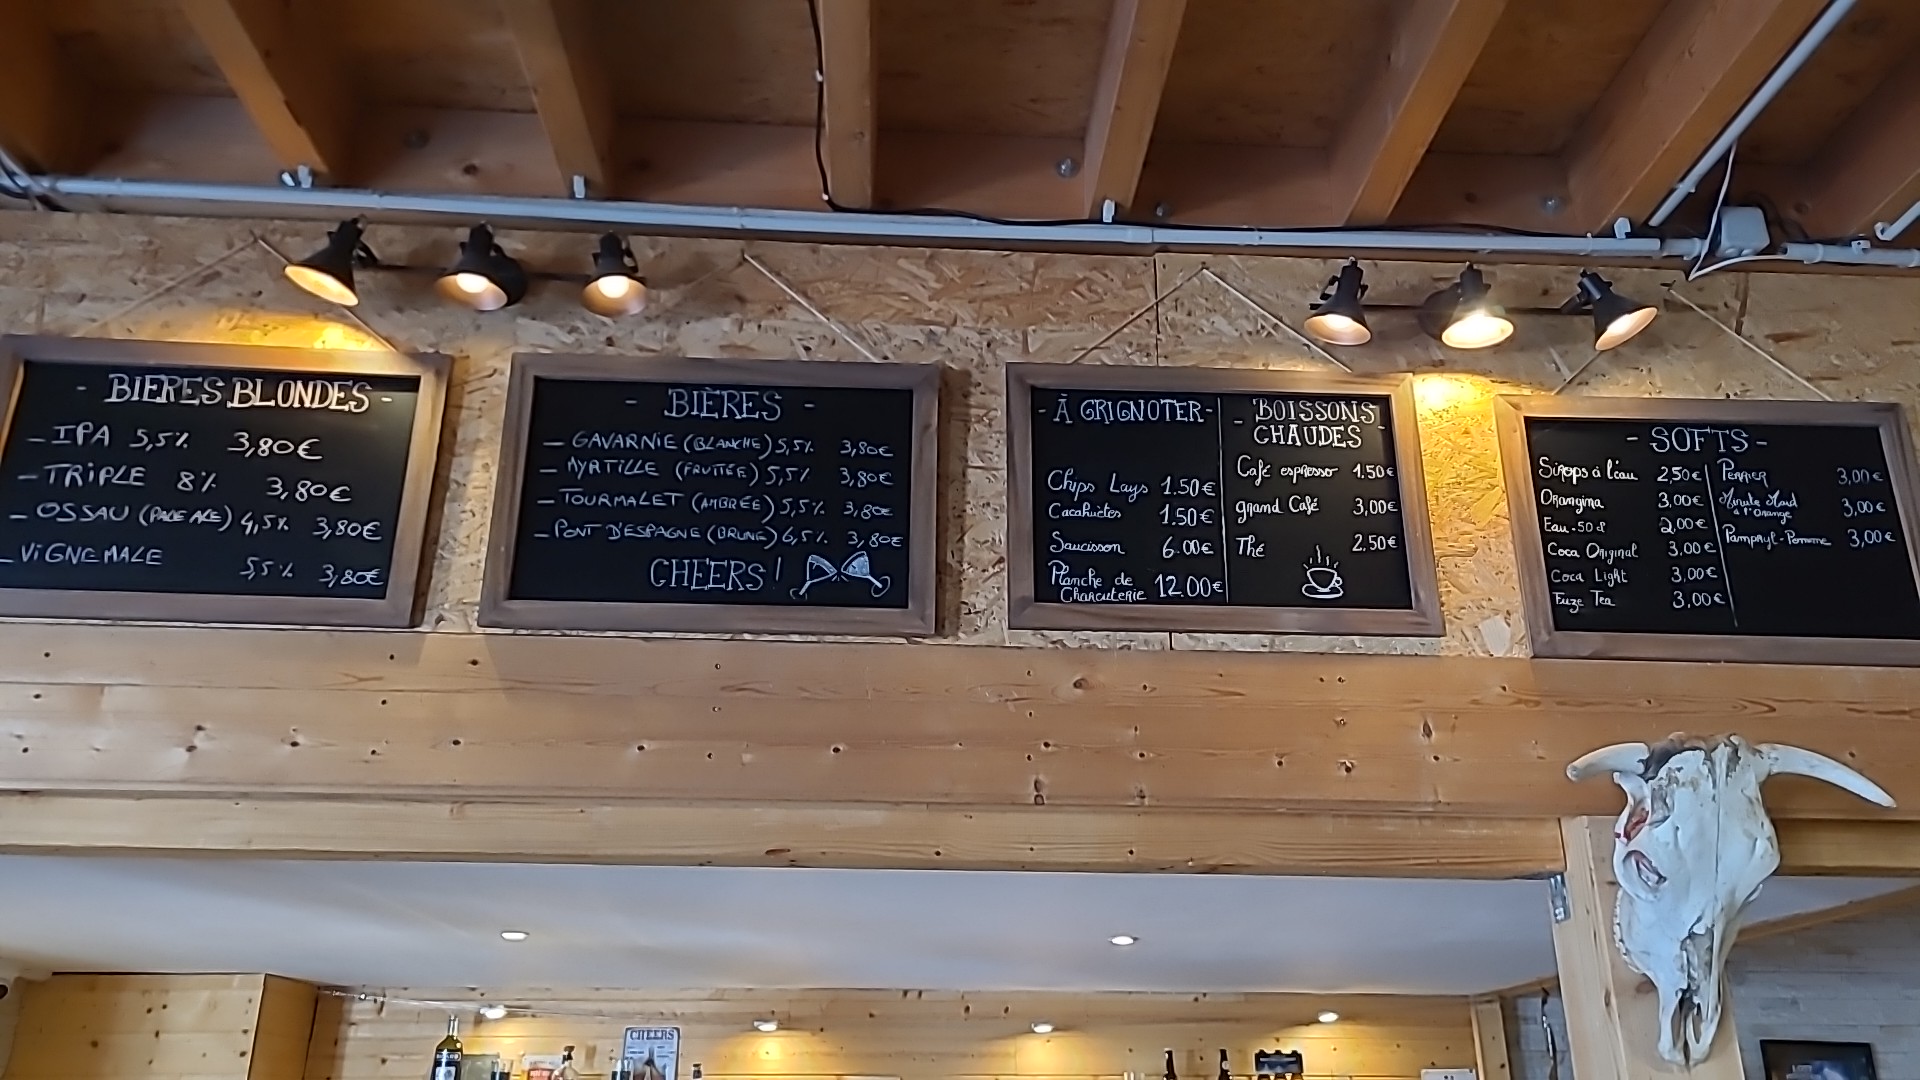 - BIERES BLONDES -
- IPA 5,5% 3,80€
- TRIPLE 8% 3,80€
- OSSAU (PALE ALE) 4,5% 3,80€
- VIGNEMALE 5,5% 3,80€
- BIÈRES -
- GAVARNIE (BLANCHE) 5,5% 3,80€
- MYRTILLE (FRUITÉE) 5,5% 3,80€
- TOURMALET (AMBRÉE) 5,5% 3,80€
- PONT D'ESPAGNE (BRUNE) 6,5% 3,80€
CHEERS!
- À GRIGNOTER -
Chips Lays 1.50€
Cacahuètes 1.50€
Saucisson 6.00€
Planche de
Charcuterie 12.00€
- BOISSONS
CHAUDES -
Café espresso 1.50€
grand Café 3,00€
Thé 2.50€
- SOFTS -
Sirops à l'eau 2,50€
Orangina 3,00€
Eau - 50 cl 2,00€
Coca Original 3,00€
Coca Light 3,00€
Fuze Tea 3,00€
PERRIER 3,00€
Minute Maid
à l'Orange 3,00€
Pampryl - Pomme 3,00€
CHEERS